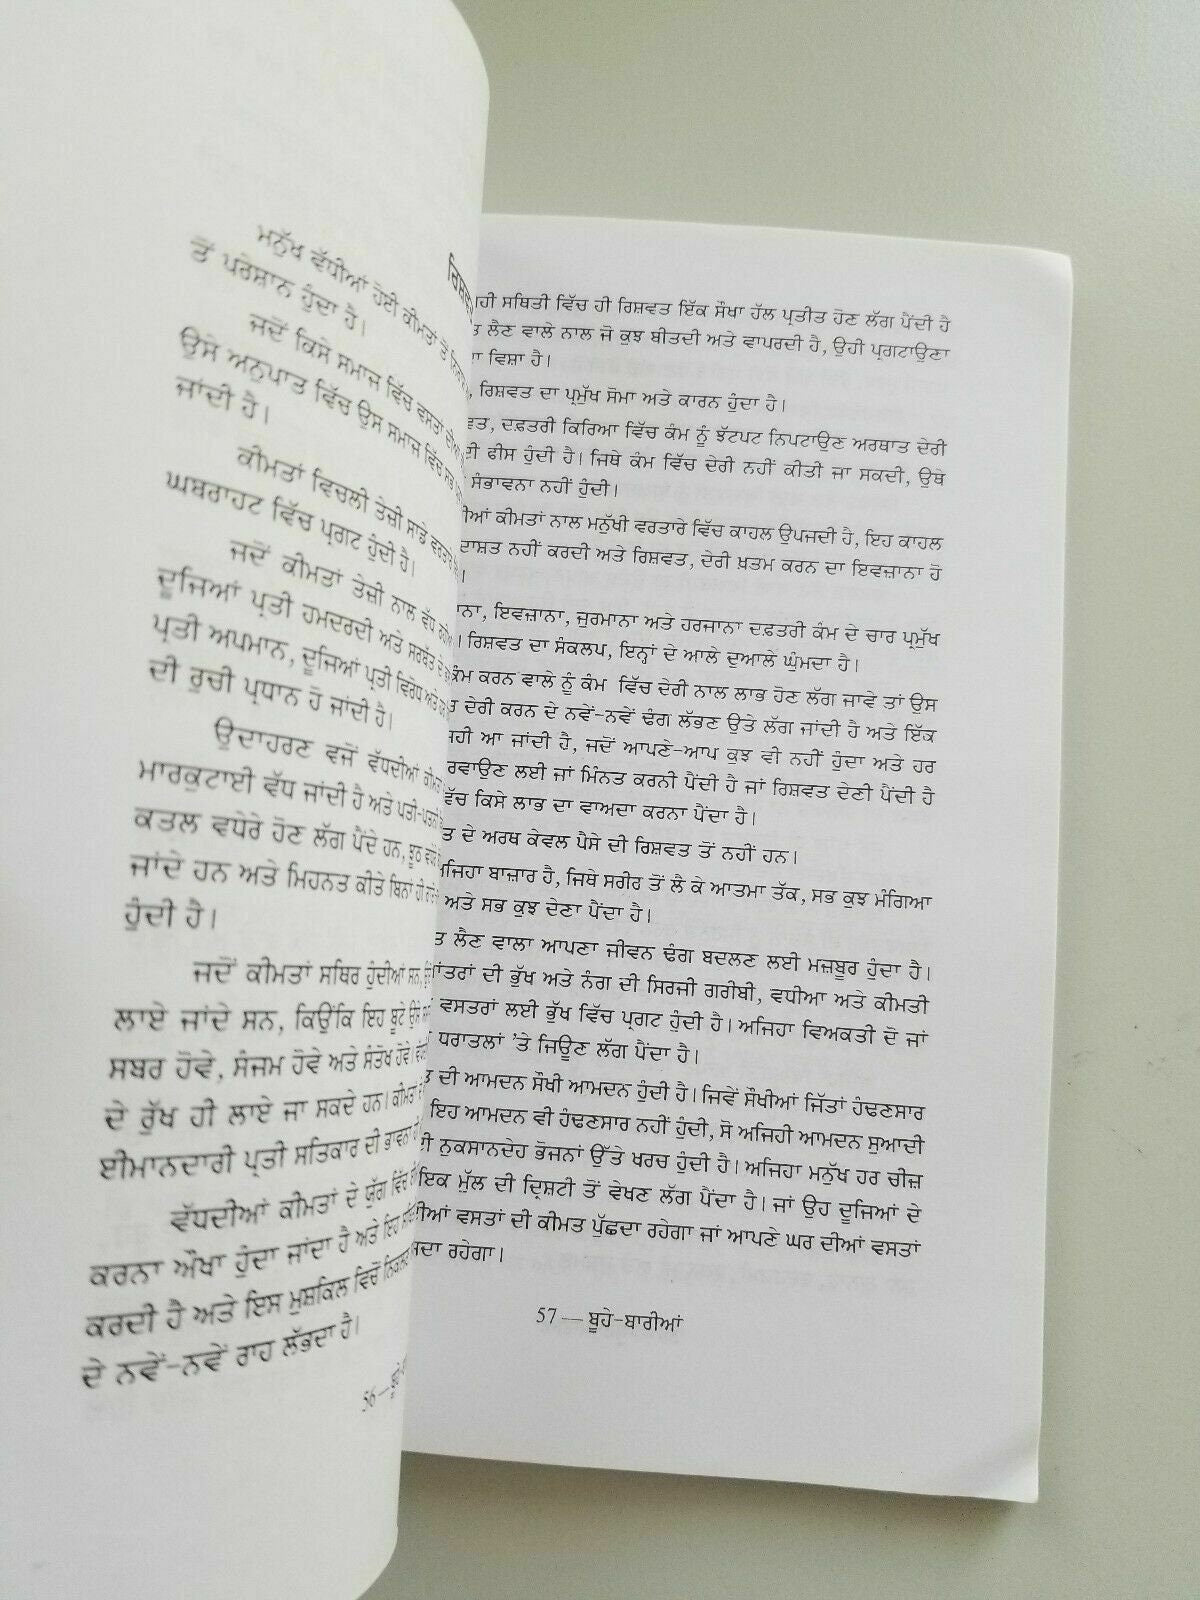 ਰਿਸ਼ਵਤ
ਮਨੁੱਖ ਵੱਧੀਆਂ ਹੋਈ ਕੀਮਤਾਂ ਤੋਂ
ਤੋਂ ਪਰੇਸ਼ਾਨ ਹੁੰਦਾ ਹੈ।
ਜਦੋਂ ਕਿਸੇ ਸਮਾਜ ਵਿੱਚ ਵਸਤਾਂ ਦੀਆਂ
ਉਸੇ ਅਨੁਪਾਤ ਵਿੱਚ ਉਸ ਸਮਾਜ ਵਿੱਚ
ਜਾਂਦੀ ਹੈ।
ਕੀਮਤਾਂ ਵਿਚਲੀ ਤੇਜ਼ੀ ਸਾਡੇ ਵਰਤਾਰੇ
ਘਬਰਾਹਟ ਵਿੱਚ ਪ੍ਰਗਟ ਹੁੰਦੀ ਹੈ।
ਜਦੋਂ ਕੀਮਤਾਂ ਤੇਜ਼ੀ ਨਾਲ ਵੱਧ
ਦੂਜਿਆਂ ਪ੍ਰਤੀ ਹਮਦਰਦੀ ਅਤੇ ਸਰਬੱਤ ਦੇ
ਪ੍ਰਤੀ ਅਪਮਾਨ, ਦੂਜਿਆਂ ਪ੍ਰਤੀ ਵਿਰੋਧ ਅਤੇ
ਦੀ ਰੁਚੀ ਪ੍ਰਧਾਨ ਹੋ ਜਾਂਦੀ ਹੈ।
ਉਦਾਹਰਣ ਵਜੋਂ ਵੱਧਦੀਆਂ ਕੀਮਤਾਂ
ਮਾਰਕੁਟਾਈ ਵੱਧ ਜਾਂਦੀ ਹੈ ਅਤੇ ਪਤੀ-ਪਤਨੀ
ਕਤਲ ਵਧੇਰੇ ਹੋਣ ਲੱਗ ਪੈਂਦੇ ਹਨ, ਝੂਠ ਵਧੇਰੇ
ਜਾਂਦੇ ਹਨ ਅਤੇ ਮਿਹਨਤ ਕੀਤੇ ਬਿਨਾਂ ਹੀ
ਹੁੰਦੀ ਹੈ।
ਜਦੋਂ ਕੀਮਤਾਂ ਸਥਿਰ ਹੁੰਦੀਆਂ ਸਨ,
ਲਾਏ ਜਾਂਦੇ ਸਨ, ਕਿਉਂਕਿ ਇਹ ਬੂਟੇ ਉਸ
ਸਬਰ ਹੋਵੇ, ਸੰਜਮ ਹੋਵੇ ਅਤੇ ਸੰਤੋਖ ਹੋਵੇ।
ਦੇ ਰੁੱਖ ਹੀ ਲਾਏ ਜਾ ਸਕਦੇ ਹਨ। ਕੀਮਤਾਂ
ਈਮਾਨਦਾਰੀ ਪ੍ਰਤੀ ਸਤਿਕਾਰ ਦੀ ਭਾਵਨਾ
ਵੱਧਦੀਆਂ ਕੀਮਤਾਂ ਦੇ ਯੁੱਗ ਵਿੱਚ
ਕਰਨਾ ਔਖਾ ਹੁੰਦਾ ਜਾਂਦਾ ਹੈ ਅਤੇ ਇਹ
ਕਰਦੀ ਹੈ ਅਤੇ ਇਸ ਮੁਸ਼ਕਿਲ ਵਿਚੋਂ ਨਿਕਲਣ
ਦੇ ਨਵੇਂ-ਨਵੇਂ ਰਾਹ ਲੱਭਦਾ ਹੈ।
56 —
ਹੀ ਸਥਿਤੀ ਵਿੱਚ ਹੀ ਰਿਸ਼ਵਤ ਇੱਕ ਸੌਖਾ ਹੱਲ ਪ੍ਰਤੀਤ ਹੋਣ ਲੱਗ ਪੈਂਦੀ ਹੈ
ਤ ਲੈਣ ਵਾਲੇ ਨਾਲ ਜੋ ਕੁਝ ਬੀਤਦੀ ਅਤੇ ਵਾਪਰਦੀ ਹੈ, ਉਹੀ ਪ੍ਰਗਟਾਉਣਾ
ਾ ਵਿਸ਼ਾ ਹੈ।
, ਰਿਸ਼ਵਤ ਦਾ ਪ੍ਰਮੁੱਖ ਸੋਮਾ ਅਤੇ ਕਾਰਨ ਹੁੰਦਾ ਹੈ।
ਵਤ, ਦਫ਼ਤਰੀ ਕਿਰਿਆ ਵਿੱਚ ਕੰਮ ਨੂੰ ਝੱਟਪਟ ਨਿਪਟਾਉਣ ਅਰਥਾਤ ਦੇਰੀ
ਦੀ ਫੀਸ ਹੁੰਦੀ ਹੈ। ਜਿਥੇ ਕੰਮ ਵਿੱਚ ਦੇਰੀ ਨਹੀਂ ਕੀਤੀ ਜਾ ਸਕਦੀ, ਉਥੇ
ਸੰਭਾਵਨਾ ਨਹੀਂ ਹੁੰਦੀ।
ੀਆਂ ਕੀਮਤਾਂ ਨਾਲ ਮਨੁੱਖੀ ਵਰਤਾਰੇ ਵਿੱਚ ਕਾਹਲ ਉਪਜਦੀ ਹੈ, ਇਹ ਕਾਹਲ
ਦਾਸ਼ਤ ਨਹੀਂ ਕਰਦੀ ਅਤੇ ਰਿਸ਼ਵਤ, ਦੇਰੀ ਖ਼ਤਮ ਕਰਨ ਦਾ ਇਵਜ਼ਾਨਾ ਹੋ
।
ਾਨਾ, ਇਵਜ਼ਾਨਾ, ਜੁਰਮਾਨਾ ਅਤੇ ਹਰਜਾਨਾ ਦਫ਼ਤਰੀ ਕੰਮ ਦੇ ਚਾਰ ਪ੍ਰਮੁੱਖ
। ਰਿਸ਼ਵਤ ਦਾ ਸੰਕਲਪ, ਇਨ੍ਹਾਂ ਦੇ ਆਲੇ ਦੁਆਲੇ ਘੁੰਮਦਾ ਹੈ।
ਕੰਮ ਕਰਨ ਵਾਲੇ ਨੂੰ ਕੰਮ ਵਿੱਚ ਦੇਰੀ ਨਾਲ ਲਾਭ ਹੋਣ ਲੱਗ ਜਾਵੇ ਤਾਂ ਉਸ
ਤ ਦੇਰੀ ਕਰਨ ਦੇ ਨਵੇਂ-ਨਵੇਂ ਢੰਗ ਲੱਭਣ ਉਤੇ ਲੱਗ ਜਾਂਦੀ ਹੈ ਅਤੇ ਇੱਕ
ਜਹੀ ਆ ਜਾਂਦੀ ਹੈ, ਜਦੋਂ ਆਪਣੇ-ਆਪ ਕੁਝ ਵੀ ਨਹੀਂ ਹੁੰਦਾ ਅਤੇ ਹਰ
ਰਵਾਉਣ ਲਈ ਜਾਂ ਮਿੰਨਤ ਕਰਨੀ ਪੈਂਦੀ ਹੈ ਜਾਂ ਰਿਸ਼ਵਤ ਦੇਣੀ ਪੈਂਦੀ ਹੈ
ਵਿੱਚ ਕਿਸੇ ਲਾਭ ਦਾ ਵਾਅਦਾ ਕਰਨਾ ਪੈਂਦਾ ਹੈ।
ਤ ਦੇ ਅਰਥ ਕੇਵਲ ਪੈਸੇ ਦੀ ਰਿਸ਼ਵਤ ਤੋਂ ਨਹੀਂ ਹਨ।
ਅਜਿਹਾ ਬਾਜ਼ਾਰ ਹੈ, ਜਿਥੇ ਸਰੀਰ ਤੋਂ ਲੈ ਕੇ ਆਤਮਾ ਤੱਕ, ਸਭ ਕੁਝ ਮੰਗਿਆ
ਅਤੇ ਸਭ ਕੁਝ ਦੇਣਾ ਪੈਂਦਾ ਹੈ।
ਤ ਲੈਣ ਵਾਲਾ ਆਪਣਾ ਜੀਵਨ ਢੰਗ ਬਦਲਣ ਲਈ ਮਜ਼ਬੂਰ ਹੁੰਦਾ ਹੈ।
ਾਂਤਰਾਂ ਦੀ ਭੁੱਖ ਅਤੇ ਨੰਗ ਦੀ ਸਿਰਜੀ ਗਰੀਬੀ, ਵਧੀਆ ਅਤੇ ਕੀਮਤੀ
ਵਸਤਰਾਂ ਲਈ ਭੁੱਖ ਵਿੱਚ ਪ੍ਰਗਟ ਹੁੰਦੀ ਹੈ। ਅਜਿਹਾ ਵਿਅਕਤੀ ਦੋ ਜਾਂ
ਧਰਾਤਲਾਂ 'ਤੇ ਜਿਊਣ ਲੱਗ ਪੈਂਦਾ ਹੈ।
ਤ ਦੀ ਆਮਦਨ ਸੌਖੀ ਆਮਦਨ ਹੁੰਦੀ ਹੈ। ਜਿਵੇਂ ਸੌਖੀਆਂ ਜਿੱਤਾਂ ਹੰਢਣਸਾਰ
ਇਹ ਆਮਦਨ ਵੀ ਹੰਢਣਸਾਰ ਨਹੀਂ ਹੁੰਦੀ, ਸੋ ਅਜਿਹੀ ਆਮਦਨ ਸੁਆਦੀ
ਨੁਕਸਾਨਦੇਹ ਭੋਜਨਾਂ ਉੱਤੇ ਖਰਚ ਹੁੰਦੀ ਹੈ। ਅਜਿਹਾ ਮਨੁੱਖ ਹਰ ਚੀਜ਼
ਇਕ ਮੁੱਲ ਦੀ ਦ੍ਰਿਸ਼ਟੀ ਤੋਂ ਵੇਖਣ ਲੱਗ ਪੈਂਦਾ ਹੈ। ਜਾਂ ਉਹ ਦੂਜਿਆਂ ਦੇ
ੀਆਂ ਵਸਤਾਂ ਦੀ ਕੀਮਤ ਪੁੱਛਦਾ ਰਹੇਗਾ ਜਾਂ ਆਪਣੇ ਘਰ ਦੀਆਂ ਵਸਤਾਂ
ਸਦਾ ਰਹੇਗਾ।
57 — ਬੂਹੇ-ਬਾਰੀਆਂ